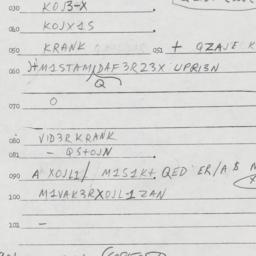 030 KOJ3-X
040 KOJX1S
050 KRANK 051 + QZAJE K
060 H+M1STAM/DAF3RZ3X UPRI3N
Q
070 O
080 VID3RKRANK
081 - QS+OJN
090 A XOJL1/ M1S1K+. QED ER/A B
100 M1VAK3RXOJL1ZAN
101 -